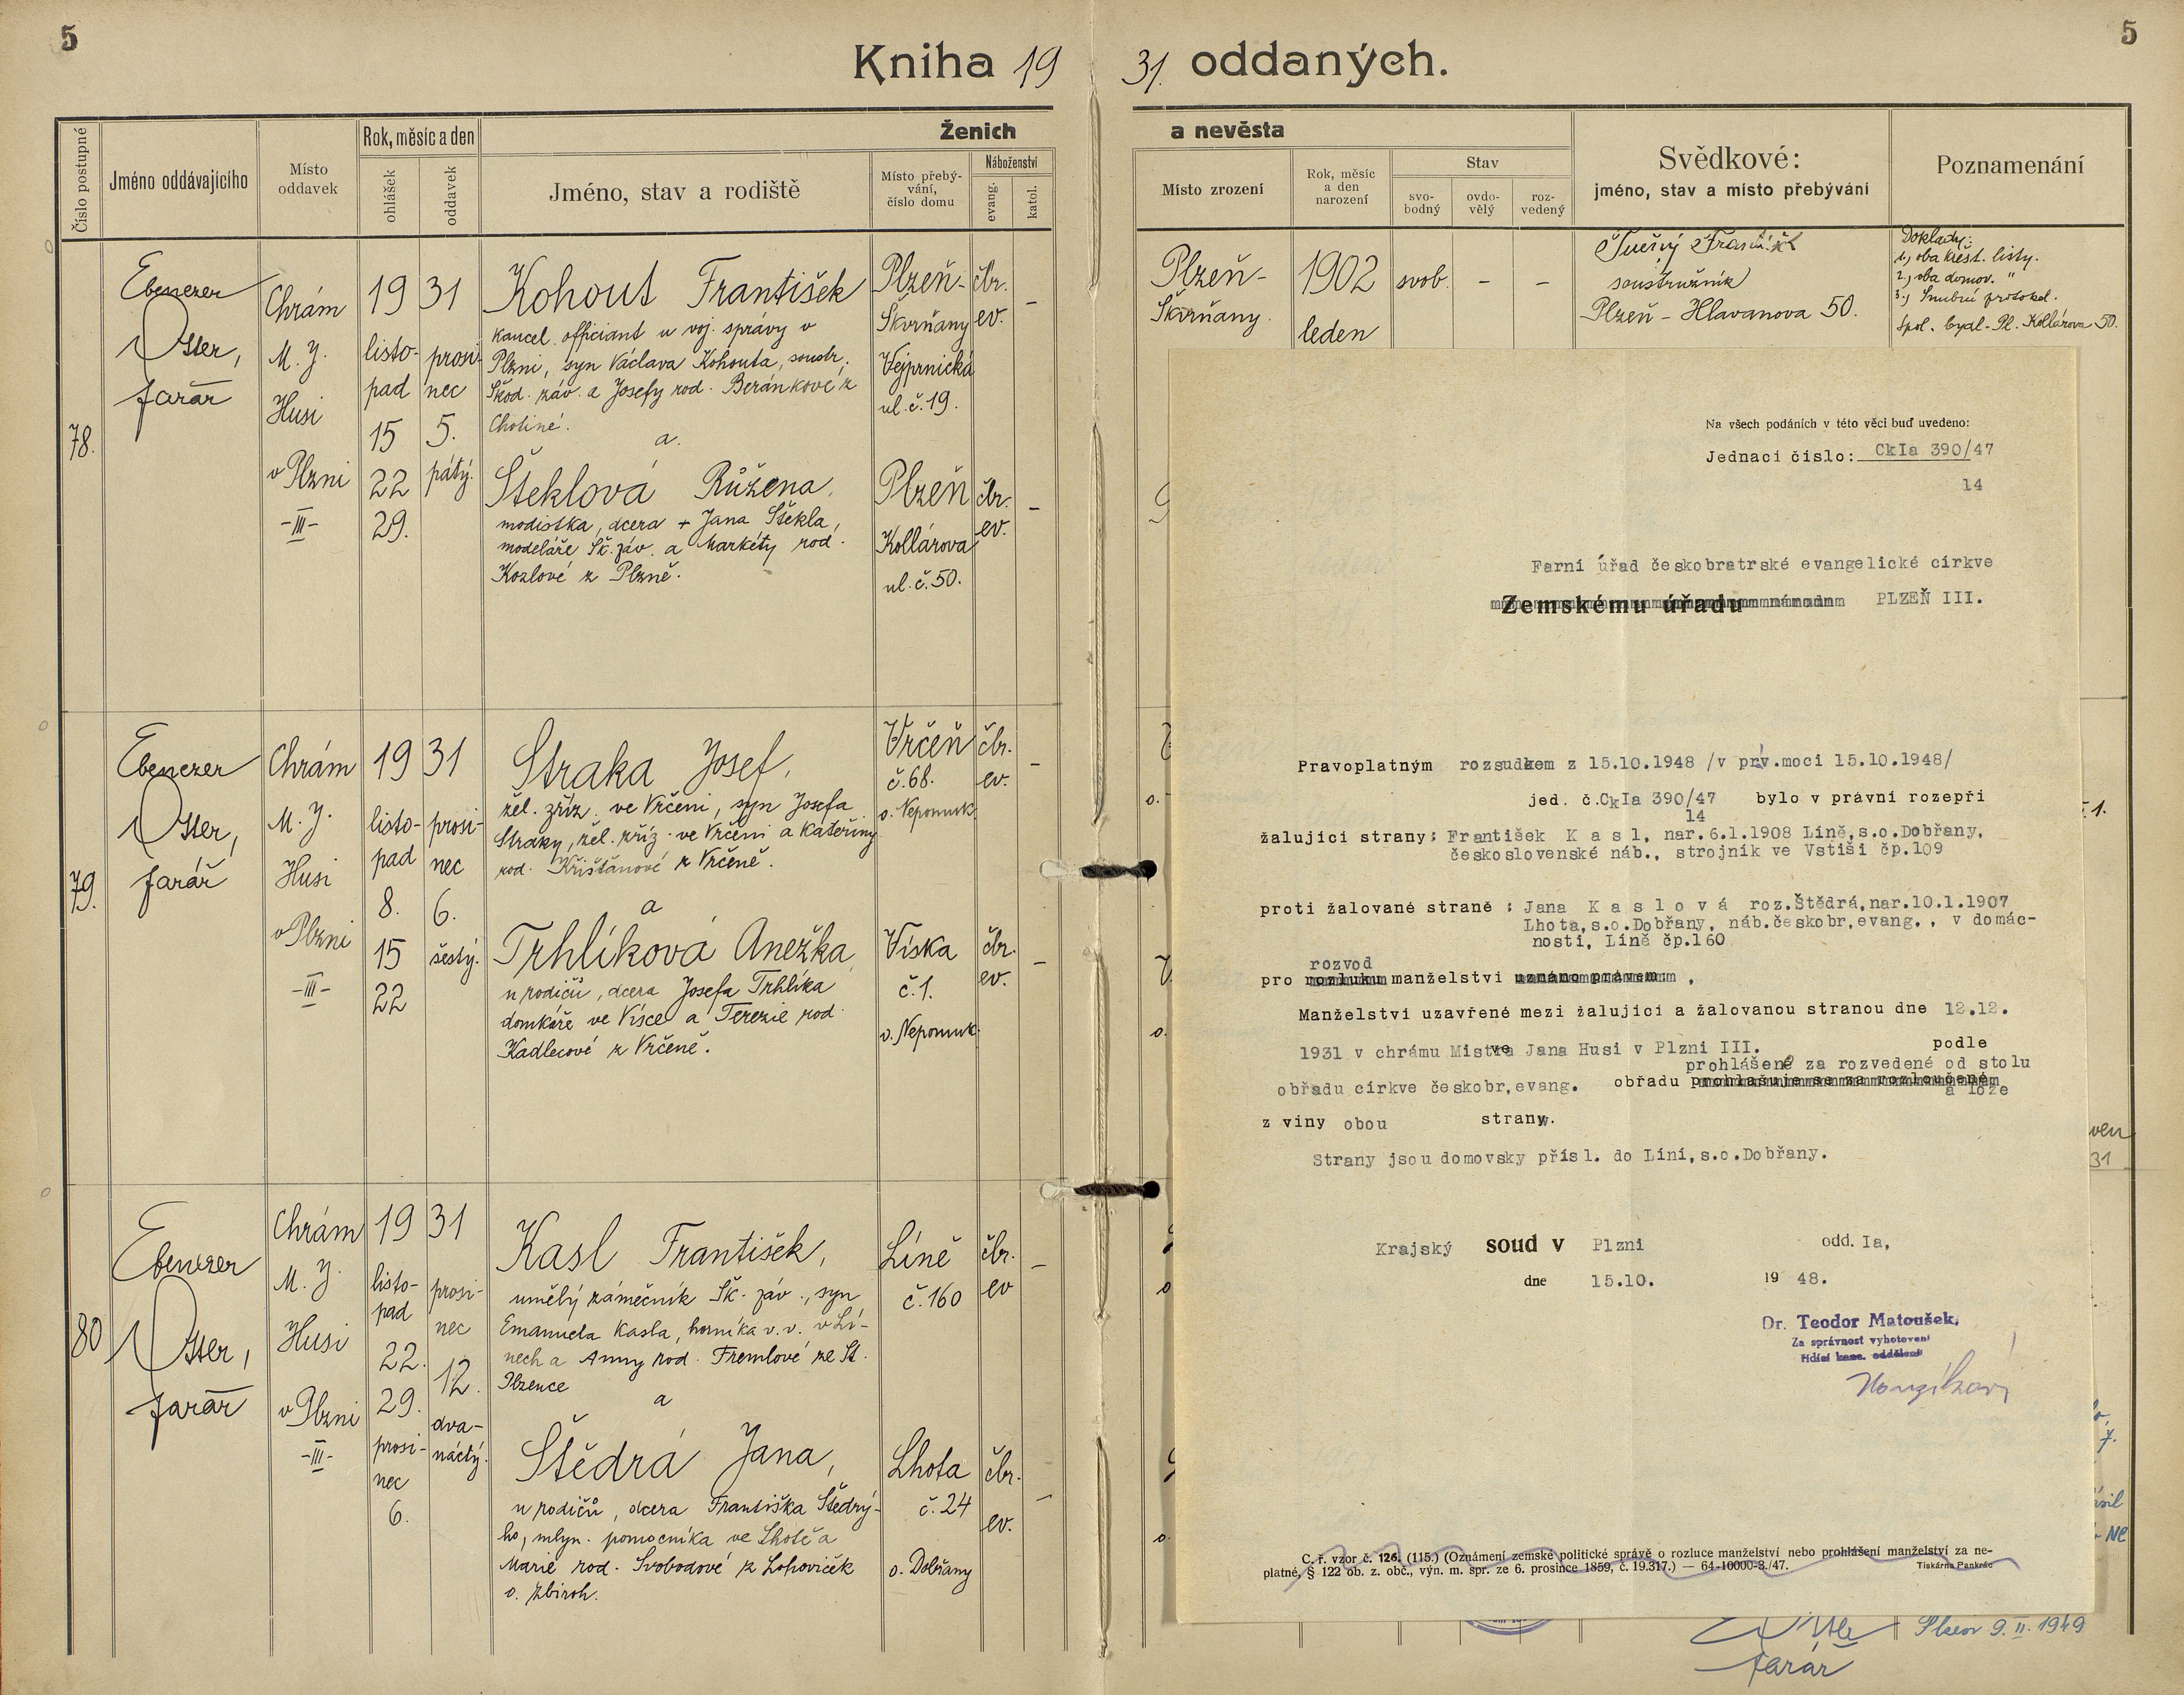 5
5
Kniha 19 31. oddaných.
Číslo postupné
Jméno oddávajícího
Místo oddavek
Rok, měsíc a den
ohlášek
oddavek
Ženich
a nevěsta
Jméno, stav a rodiště
Místo přebývání, číslo domu
Náboženství
evang.
katol.
Místo zrození
Rok, měsíc a den narození
Stav
svobodný
ovdovělý
rozvedený
Svědkové:
jméno, stav a místo přebývání
Poznamenání
78.
Ebenezer
Otter,
farář
Chrám
M. J.
Husi
v Plzni
-III-
19 31
listopad
15
22
29.
prosinec
5.
pátý.
Kohout František
kancel. officiant u voj. správy v
Plzni, syn Václava Kohouta, soustr.
Škod. záv. a Josefy rod. Beránkové z
Chotiné.
a.
Šteklová Růžena,
modistka, dcera + Jana Štekla,
modeláře Šk. záv. a Markéty rod.
Kozlové z Plzně.
Plzeň-
Škvrňany
Vejprnická
ul. č. 19.
čbr.
ev.
-
Plzeň
Kollárova
ul. č. 50.
čbr.
ev.
-
Plzeň-
Škvrňany.
1902
leden
svob.
-
-
soustružník
Plzeň - Hlavanova 50.
Doklady:
1, oba křest. listy.
2, oba domov. "
3, Snubní protokol.
Spol. bydl. - Pl. Kollárova 50.
79.
Ebenezer
Otter,
farář
Chrám
M. J.
Husi
v Plzni
-III-
19 31
listopad
8.
15
22
prosinec
6.
šestý.
Straka Josef,
žel. zříz. ve Vrčeni, syn Josefa
Straky, žel. zříz. ve Vrčeni a Kateřiny
rod. Křišťánové z Vrčeně.
a
Trhlíková Anežka,
u rodičů, dcera Josefa Trhlíka
domkáře ve Vísce a Terezie rod.
Kadlecové z Vrčeně.
Vrčeň
č. 68.
o. Nepomuk
čbr.
ev.
-
Víska
č. 1.
o. Nepomuk
čbr.
ev.
-
80
Ebenezer
Otter,
farář
Chrám
M. J.
Husi
v Plzni
-III-
19 31
listopad
22.
29.
prosinec
6.
prosinec
12.
dvanáctý.
Kasl František,
umělý zámečník Šk. záv., syn
Emanuela Kasla, horníka v. v. v Lí-
nech a Anny rod. Fremlové ze St.
Plzence
a
Štědrá Jana,
u rodičů, dcera Františka Štědrý-
ho, mlyn. pomocníka ve Lhotě a
Marie rod. Svobodové z Lohoviček
o. Zbiroh.
Líně
č. 160
čbr.
ev
-
Lhota
č. 24
o. Dobřany
čbr.
ev.
-
Na všech podáních v této věci buď uvedeno:
Jednací číslo: CkIa 390/47
14
Farní úřad českobratrské evangelické církve
Zemskému úřadu PLZEŇ III.
Pravoplatným rozsudkem z 15.10.1948 /v práv.moci 15.10.1948/
jed. č. CkIa 390/47 bylo v právní rozepři
14
žalující strany: František K a s l, nar.6.1.1908 Líně,s.o.Dobřany,
československé náb., strojník ve Vstiši čp.109
proti žalované straně : Jana K a s l o v á roz.Štědrá,nar.10.1.1907
Lhota,s.o.Dobřany, náb.českobr.evang., v domác-
nosti, Líně čp.160
rozvod
pro rozluku manželství uznáno právem ,
Manželství uzavřené mezi žalující a žalovanou stranou dne 12.12.
1931 v chrámu Mistra Jana Husi v Plzni III. podle
prohlášené za rozvedené od stolu
obřadu církve českobr.evang. obřadu prohlašuje se za rozloučené
a lože
z viny obou strany.
Strany jsou domovsky přísl. do Líní,s.o.Dobřany.
Krajský soud v Plzni odd. Ia,
dne 15.10. 19 48.
Dr. Teodor Matoušek.
Za správnost vyhotovení
řídící kanc. oddělení
C. ř. vzor č. 126. (115.) (Oznámení zemské politické správě o rozluce manželství nebo prohlášení manželství za ne-
platné, § 122 ob. z. obč., výn. m. spr. ze 6. prosince 1859, č. 19.317.) — 64-10000-3./47.
Tiskárna Pankrác
farář
Plzeň 9. II. 1949